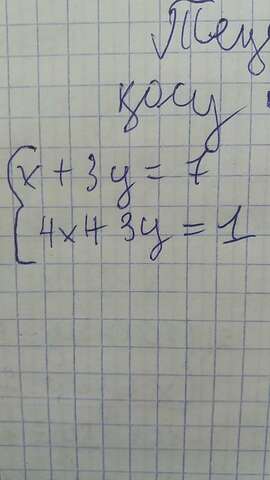 қосу
x + 3y = 7
4x + 3y = 1